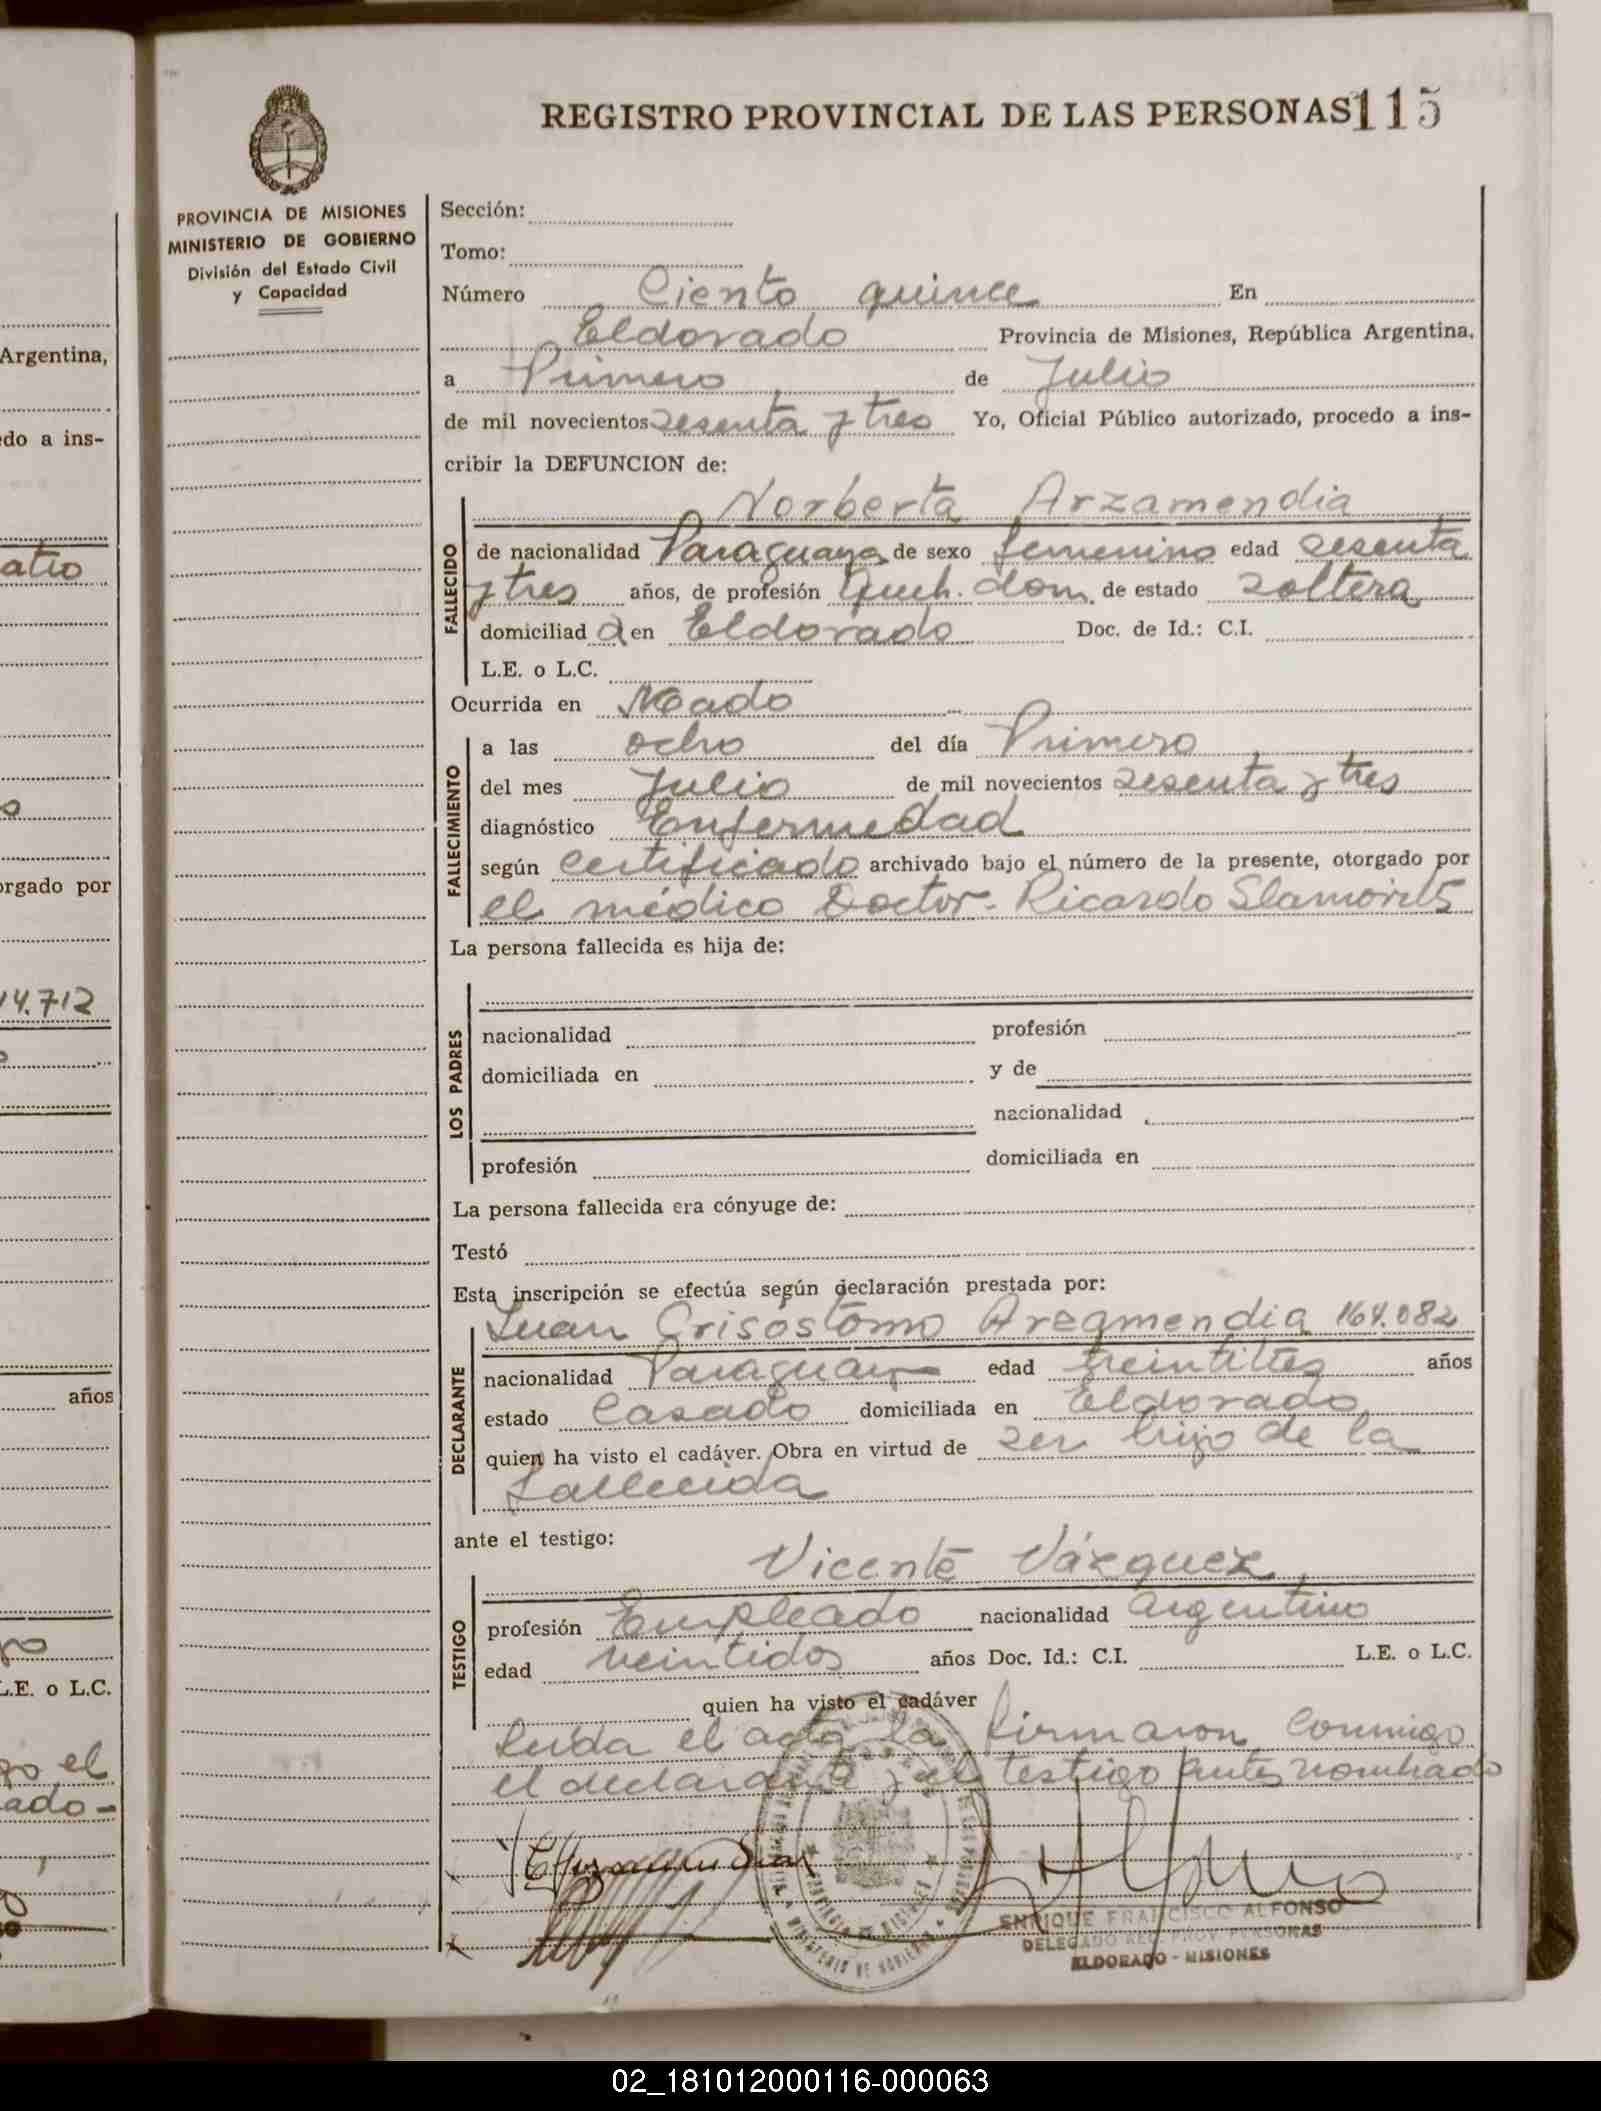 REGISTRO PROVINCIAL DE LAS PERSONAS 115
PROVINCIA DE MISIONES
MINISTERIO DE GOBIERNO
División del Estado Civil
y Capacidad
Sección:
Tomo:
Número Ciento quince En
Eldorado Provincia de Misiones, República Argentina,
a Primero de Julio
de mil novecientos sesenta y tres Yo, Oficial Público autorizado, procedo a ins-
cribir la DEFUNCION de:
Norberta Arzamendia
FALLECIDO
de nacionalidad Paraguaya de sexo femenino edad sesenta
y tres años, de profesión Queh. dom. de estado soltera
domiciliad a en Eldorado Doc. de Id.: C.I.
L.E. o L.C.
Ocurrida en Mado
FALLECIMIENTO
a las ocho del día Primero
del mes Julio de mil novecientos sesenta y tres
diagnóstico Enfermedad
según certificado archivado bajo el número de la presente, otorgado por
el médico Doctor- Ricardo
La persona fallecida es hija de:
LOS PADRES
nacionalidad profesión
domiciliada en y de
nacionalidad
profesión domiciliada en
La persona fallecida era cónyuge de:
Testó
Esta inscripción se efectúa según declaración prestada por:
DECLARANTE
Juan Crisostomo Arzamendia 164.082
nacionalidad Paraguayo edad treintitres años
estado Casado domiciliada en Eldorado
quien ha visto el cadáver. Obra en virtud de ser hijo de la
fallecida
ante el testigo:
Vicente Vázquez
TESTIGO
profesión Empleado nacionalidad argentino
edad veintidos años Doc. Id.: C.I. L.E. o L.C.
quien ha visto el cadáver
Leída el acta la firmaron conmigo
el declarante y el testigo antes nombrado
ENRIQUE FRANCISCO ALFONSO
DELEGADO REG. PROV. PERSONAS
ELDORADO - MISIONES
Argentina,
do a ins-
atro
orgado por
14.712
años
L.E. o L.C.
go el
ado-
02_181012000116-000063